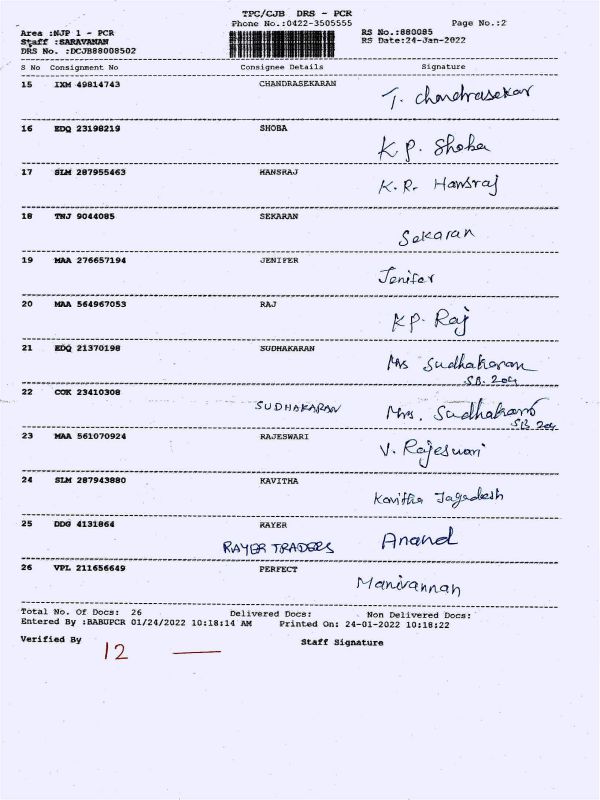 TPC/CJB DRS - PCR
Phone No.:0422-3505555 Page No.:2
Area :NJP 1 - PCR RS No.:880085
Staff :SARAVANAN RS Date:24-Jan-2022
DRS No. :DCJB88008502
S No Consignment No Consignee Details Signature
15 IXM 49814743 CHANDRASEKARAN T. Chandrasekar
16 EDQ 23198219 SHOBA K.P. Shoba
17 SLM 287955463 HANSRAJ K.R. Hansraj
18 TNJ 9044085 SEKARAN Sekaran
19 MAA 276657194 JENIFER Jenifer
20 MAA 564967053 RAJ KP. Raj
21 EDQ 21370198 SUDHAKARAN Mrs Sudhakaran
SB. 204
22 COK 23410308 SUDHAKARAN Mrs. Sudhakaran
SB 204
23 MAA 561070924 RAJESWARI V. Rajeswari
24 SLM 287943880 KAVITHA Kavitha Jagadesh
25 DDG 4131864 RAYER Anand
RAYER TRADERS
26 VPL 211656649 PERFECT Manivannan
Total No. Of Docs: 26 Delivered Docs: Non Delivered Docs:
Entered By :BABUPCR 01/24/2022 10:18:14 AM Printed On: 24-01-2022 10:18:22
Verified By Staff Signature
12 —